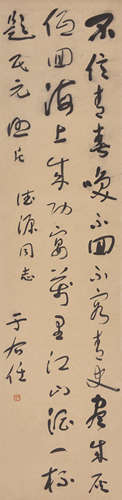 不信青春喚不回不容青史盡成灰
低回海上成功宴萬里江山酒一杯
題民元照片
德源同志
于右任